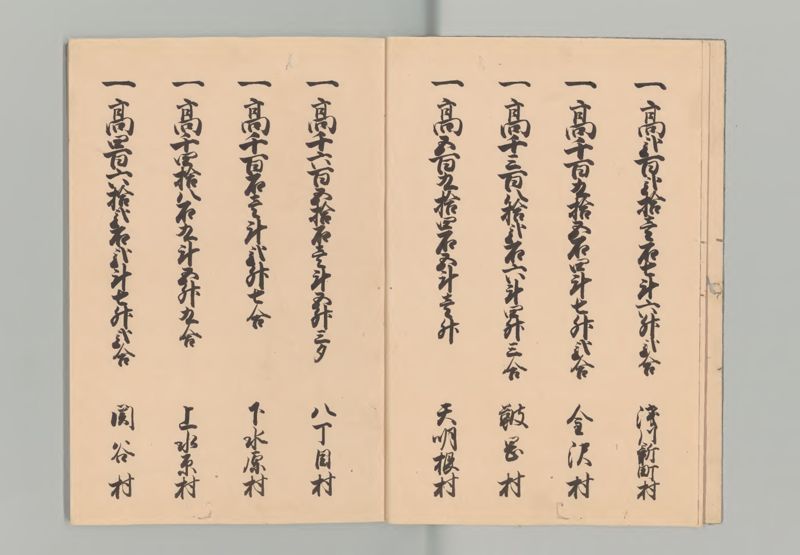 一高弐百弐拾壱石七斗六升弐合 渋川新町村
一高千百九拾五石四斗七升弐合 金沢村
一高千三百八拾弐石六斗四升三合 鼓岡村
一高五百九拾四石五斗壱升 天明根村
一高千六百五拾石壱斗五升三夕 八丁目村
一高千百石壱斗弐升七合 下水原村
一高千四拾八石九斗五升九合 上水原村
一高四百六拾弐石弐斗七升弐合 関谷村